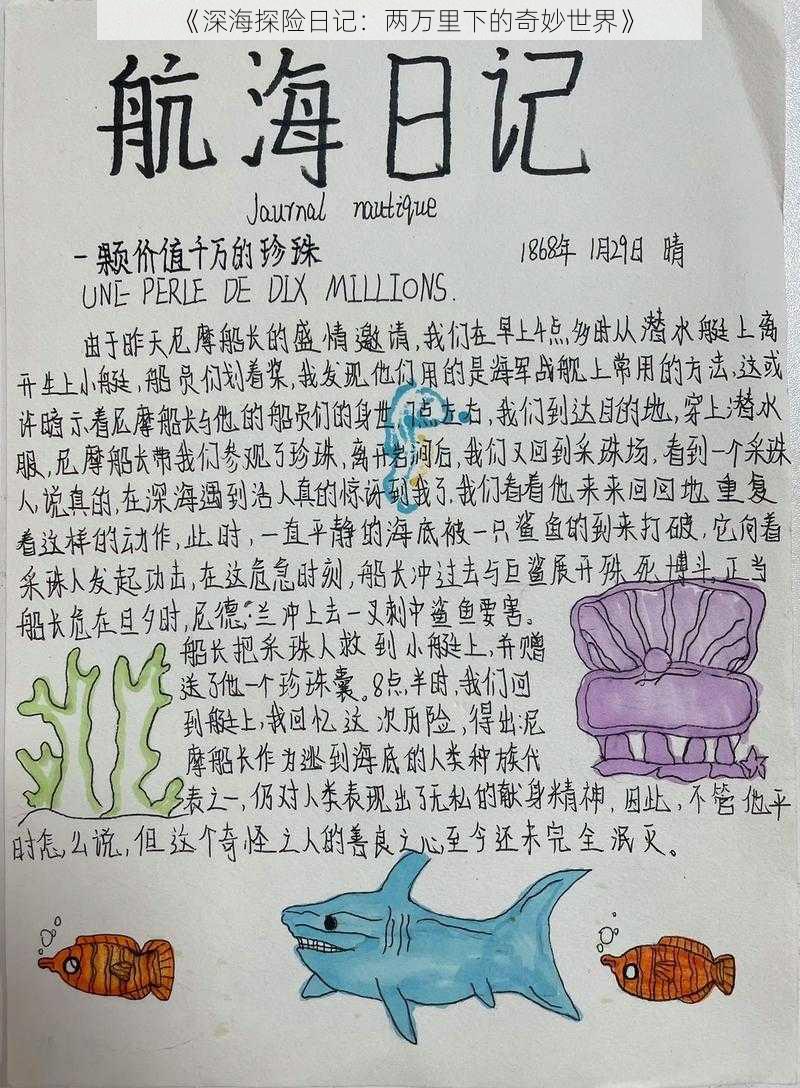 《深海探险日记：两万里下的奇妙世界》
航海日记
Journal nautique
一颗价值千万的珍珠 1868年 1月29日 晴
UNE PERLE DE DIX MILLIONS.
由于昨天尼摩船长的盛情邀请，我们在早上4点多时从潜水艇上离
开坐上小艇，船员们划着桨，我发现他们用的是海军战舰上常用的方法，这或
许暗示着尼摩船长与他的船员们的身世，门点左右，我们到达目的地，穿上潜水
服，尼摩船长带我们参观了珍珠，离开岩洞后，我们又回到采珠场，看到一个采珠
人，说真的，在深海遇到活人真的惊讶到我了，我们看着他来来回回地重复
着这样的动作，此时，一直平静的海底被一只鲨鱼的到来打破，它向着
采珠人发起攻击，在这危急时刻，船长冲过去与巨鲨展开殊死搏斗，正当
船长危在旦夕时，尼德·兰冲上去一叉刺中鲨鱼要害。
船长把采珠人救到小艇上，并赠
送了他一个珍珠囊。8点半时，我们回
到艇上，我回忆这次历险，得出：尼
摩船长作为逃到海底的人类种族代
表之一，仍对人类表现出了无私的献身精神，因此，不管他平
时怎么说，但这个奇怪之人的善良之心至今还未完全泯灭。